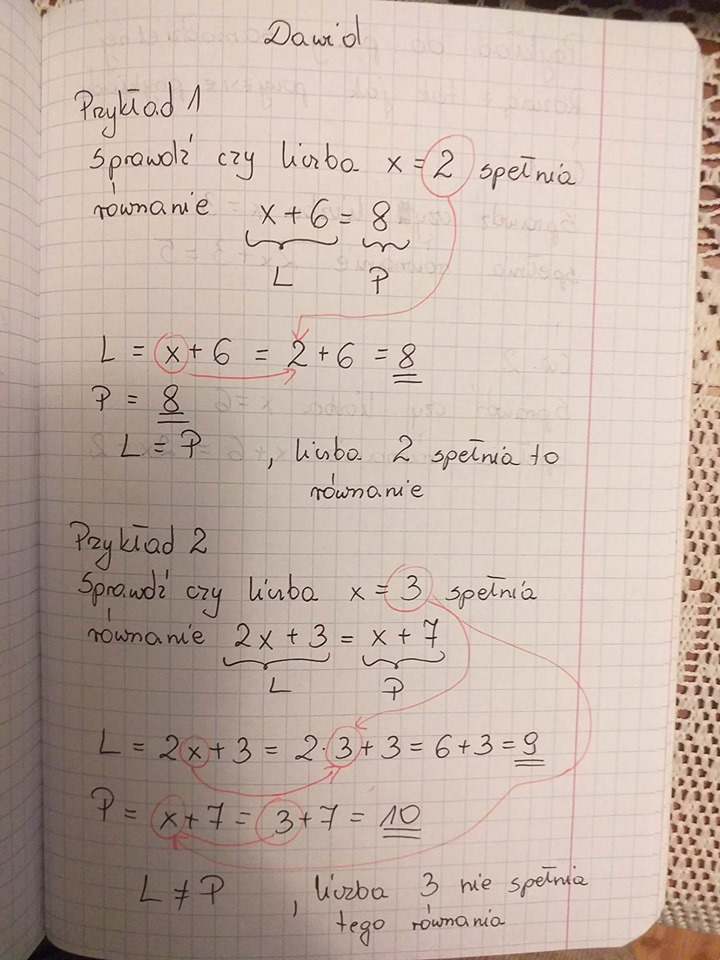 Dawid
Przykład 1
Sprawdź czy liczba x = 2 spełnia
równanie x + 6 = 8
L P
L = x + 6 = 2 + 6 = 8
P = 8
L = P , liczba 2 spełnia to
równanie
Przykład 2
Sprawdź czy liczba x = 3 spełnia
równanie 2x + 3 = x + 7
L P
L = 2x + 3 = 2·3 + 3 = 6 + 3 = 9
P = x + 7 = 3 + 7 = 10
L ≠ P , liczba 3 nie spełnia
tego równania